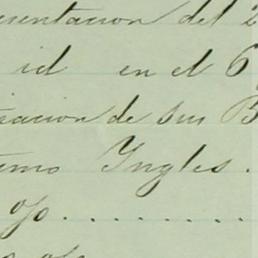 esentacion del 2
id en el 6
racion de sus B
timo Yngles.
o/o . . . . . . . . . .